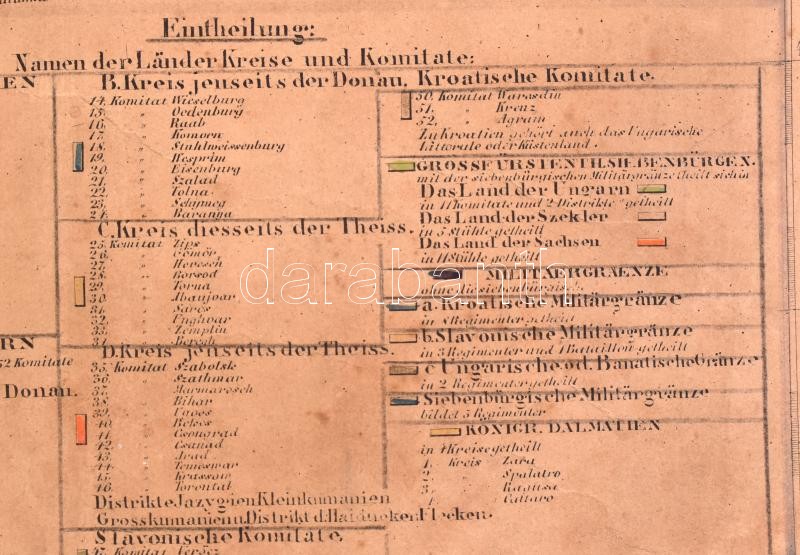 Eintheilung:
Namen der Länder Kreise und Komitate:
EN
RN
52 Komitate
Donau.
B. Kreis jenseits der Donau.
14. Komitat Wieselburg
15. " Oedenburg
16. " Raab
17. " Komorn
18. " Stuhlweissenburg
19. " Wesprim
20. " Eisenburg
21. " Szalad
22. " Tolna
23. " Schymeg
24. " Baranya
C. Kreis diesseits der Theiss.
25. Komitat Zips
26. " Gömör
27. " Hevesen
28. " Borsod
29. " Torna
30. " Abaujvar
31. " Saros
32. " Unghvar
33. " Zemplin
34. " Beregh
D. Kreis jenseits der Theiss.
35. Komitat Szabolsk
36. " Szathmar
37. " Marmarosch
38. " Bihar
39. " Ugocs
40. " Bekes
41. " Csongrad
42. " Csanad
43. " Arad
44. " Temeswar
45. " Krassow
46. " Torontal
Distrikte Jazygien Kleinkumanien
Grosskumanien u. Distrikt d. Haiducken Flecken.
Slavonische Komitate.
47. Komitat Veröcz
Kroatische Komitate.
50. Komitat Warasdin
51. " Kreuz
52. " Agram
Zu Kroatien gehört auch das Ungarische
Littorale oder Küstenland.
GROSSFÜRSTENTH. SIEBENBÜRGEN.
mit der siebenbürgischen Militärgränze theilt sich in
Das Land der Ungarn
in 11 Komitate und 2 Distrikte getheilt
Das Land der Szekler
in 5 Stühle getheilt
Das Land der Sachsen
in 11 Stühle getheilt
MILITAERGRAENZE
ohne die siebenbürgisch.
a. Kroatische Militärgränze
in 4 Regimenter getheilt
b. Slavonische Militärgränze
in 3 Regimenter und 1 Bataillon getheilt
c Ungarische od. Banatische Gränze
in 2 Regimenter getheilt
Siebenbürgische Militärgränze
bildet 5 Regimenter
KÖNIGR. DALMATIEN
in 4 Kreise getheilt
1. Kreis Zara
2. " Spalatro
3. " Ragusa
4. " Cattaro
darabanth